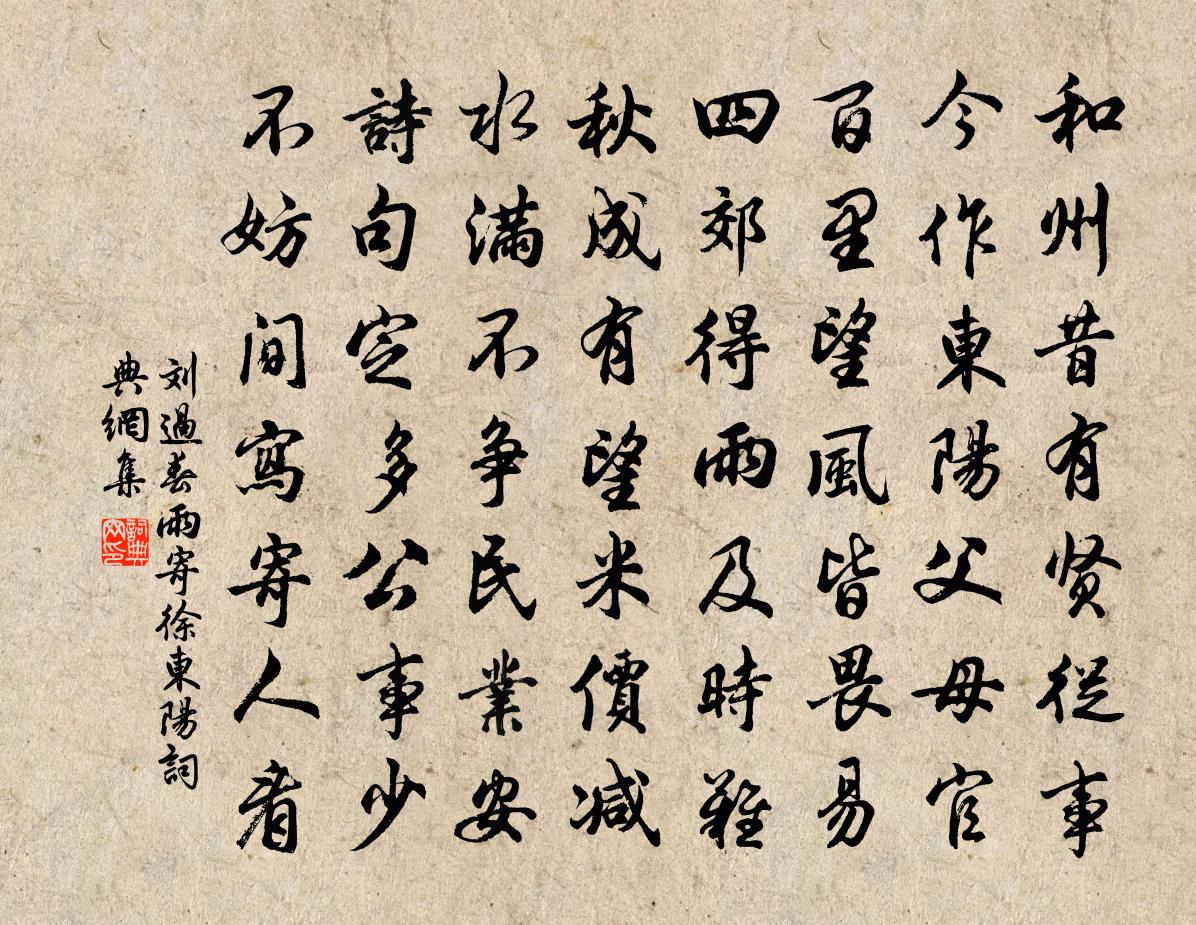 和州昔有贤從事
今作東陽父母官
百里望風皆畏易
四郊得雨及時難
秋成有望米價减
水滿不争民業安
詩句定多公事少
不妨间寫寄人看
刘過春雨寄徐東陽詞
典網集
詞典
网印